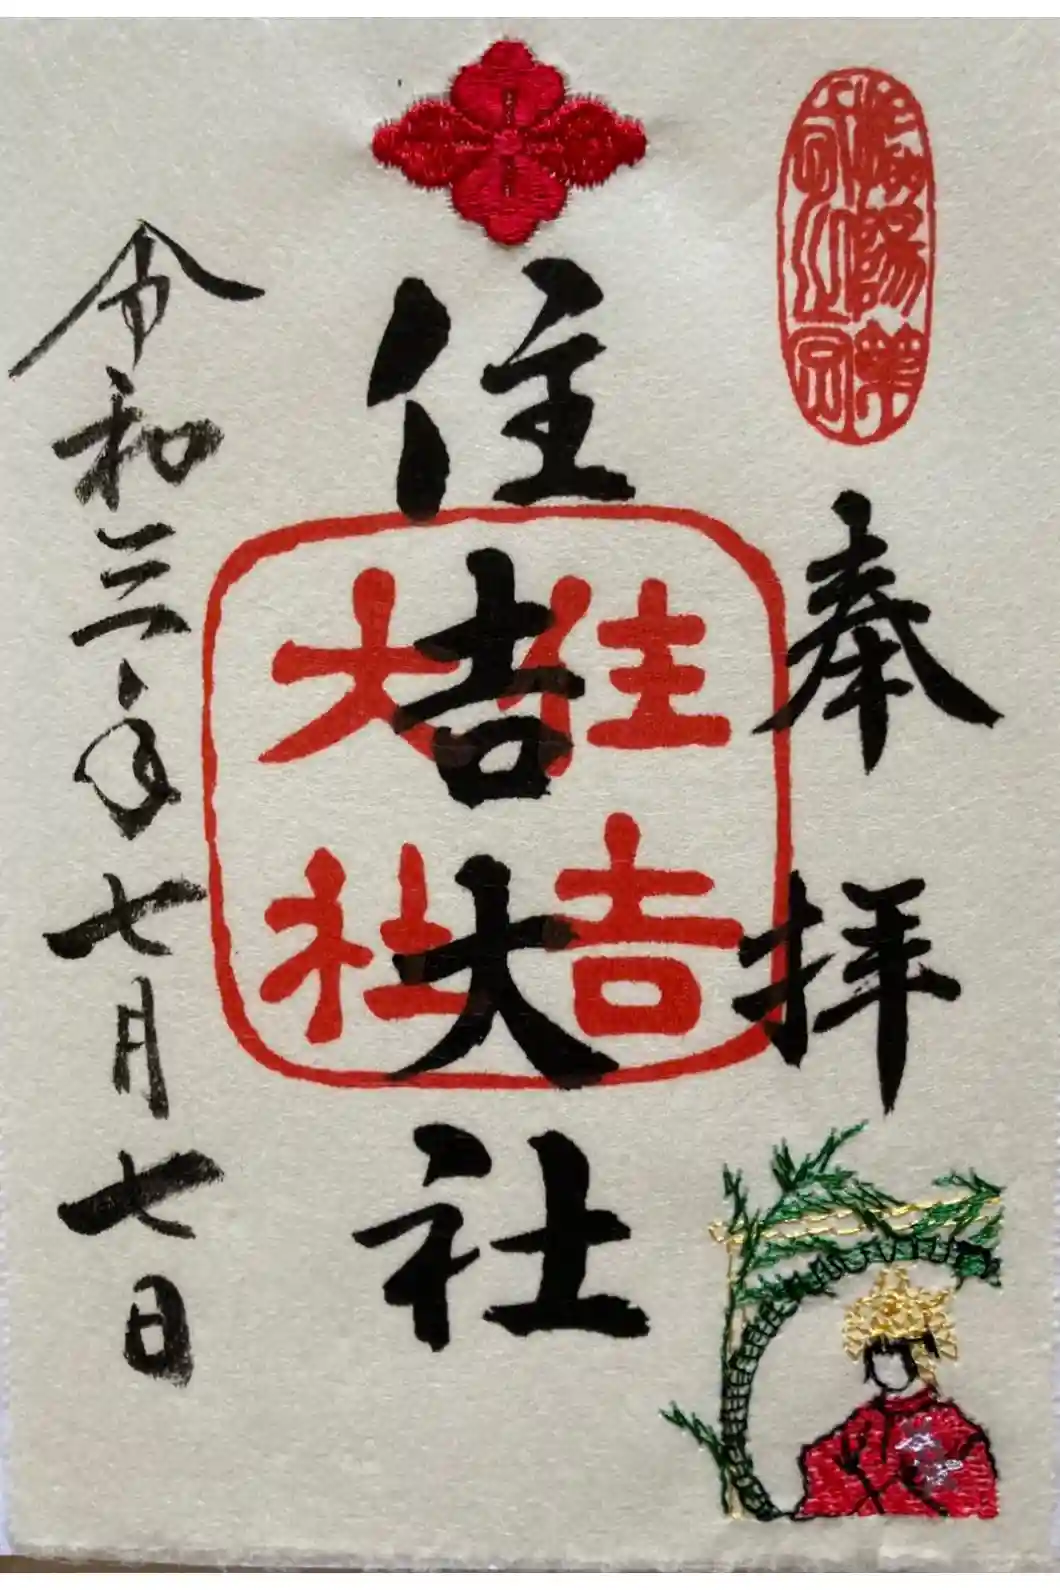 奉拝
住吉大社
住吉
大社
令和三年七月七日